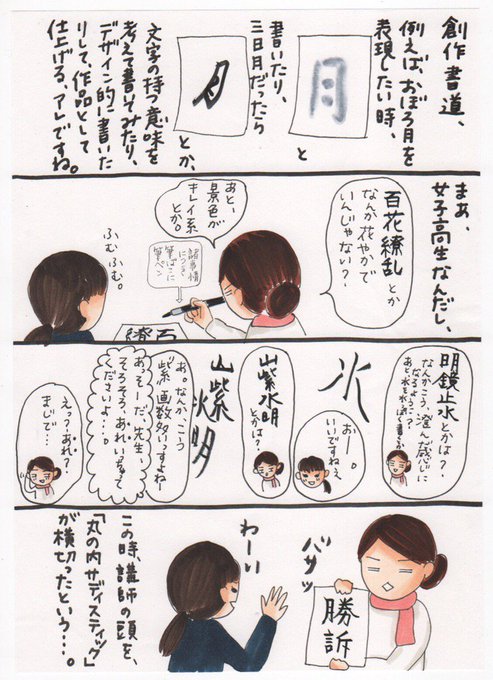 創作書道、
例えば、おぼろ月を
表現したい時、
月
と
書いたり、
三日月だったら
月
とか、
文字の持つ意味を
考えて書いてみたり、
デザイン的に書いた
りして、作品として
仕上げる、アレですね。
まあ、
女子高生なんだし、
百花繚乱とか
なんか花やかで
いんじゃない？
あと、
景色が
キレイ系
とか。
諸事情
により
筆ペン
ふむふむ。
明鏡止水とかは？
なんかこう、澄んだ感じに
なるように。
水
おー。
いいですねぇ
山紫水明
とかは？
山紫
水明
あ。なんか、こう
"紫"画数多いっすよねー
あっそーだ、先生〜
そろそろ、あれいっちゃって
くださいよ〜。
えっ？あれ？
まじで…
バサッ
勝訴
わーい
この時、講師の頭を、
「丸の内サディスティック」
が横切ったという…。